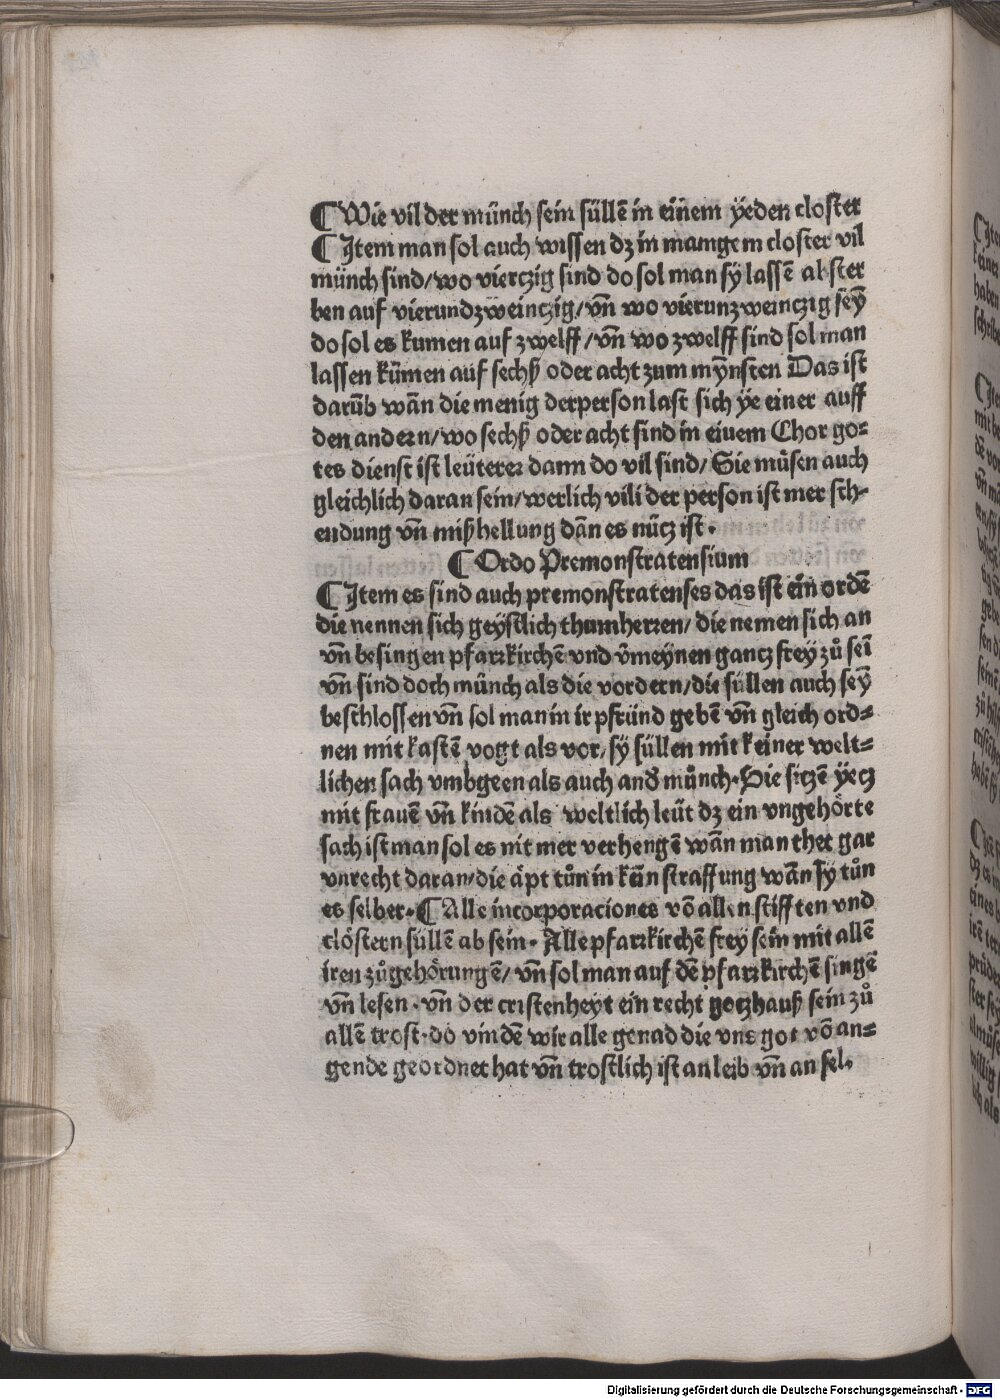 ¶ Wie vil der münch sein süllē in einem yeden closter
¶ Item man sol auch wissen dz in mamgem closter vil
münch sind/wo vierczig sind do sol man sy lassē abster
ben auf vierundzweinczig/vn̄ wo vierunzweinczig seȳ
do sol es kumen auf zwelff/vn̄ wo zwelff sind sol man
lassen kūmen auf sechß oder acht zum mȳnsten Das ist
darūb wān die menig der person last sich ye einer auff
den andern/wo sechß oder acht sind in eiuem Chor go⸗
tes dienst ist leüterer dann do vil sind/Sie müsen auch
gleichlich daran sein/werlich vili der person ist mer sch⸗
endung vn̄ mißhellung dān es nücz ist.
¶ Ordo Premonstratensium
¶ Item es sind auch premonstratenses das ist ein ordē
die nennen sich geystlich thumherren/die nemen sich an
vn̄ besingen pfarrkirchē vnd v̄meynen gancz frey zů seī
vn̄ sind doch münch als die vordern/die süllen auch seȳ
beschlossen vn̄ sol man in ir pfründ gebē vn̄ gleich ord⸗
nen mit kastē vogt als vor/sy süllen mit keiner welt⸗
lichen sach vmbgeen als auch and̄ münch. Sie siczē yecz
mit frauē vn̄ kindē als weltlich leüt dz ein vngehörte
sach ist man sol es nit mer verhengē wān man thet gar
vnrecht daran/die äpt tůn in kün straffung wān sy tůn
es selber. ¶ Alle incorporaciones vō allen stifften vnd
clöstern süllē ab sein. Alle pfarrkirchē frey sein mit allē
iren zůgehörungē/vn̄ sol man auf dē pfarrkirchē singē
vn̄ lesen. vn̄ der cristenheyt ein recht goczhauß sein zů
allē trost. do vindē wir alle genad die vns got vō an⸗
gende geordnet hat vn̄ trostlich ist an leib vn̄ an sel.
Digitalisierung gefördert durch die Deutsche Forschungsgemeinschaft - DFG